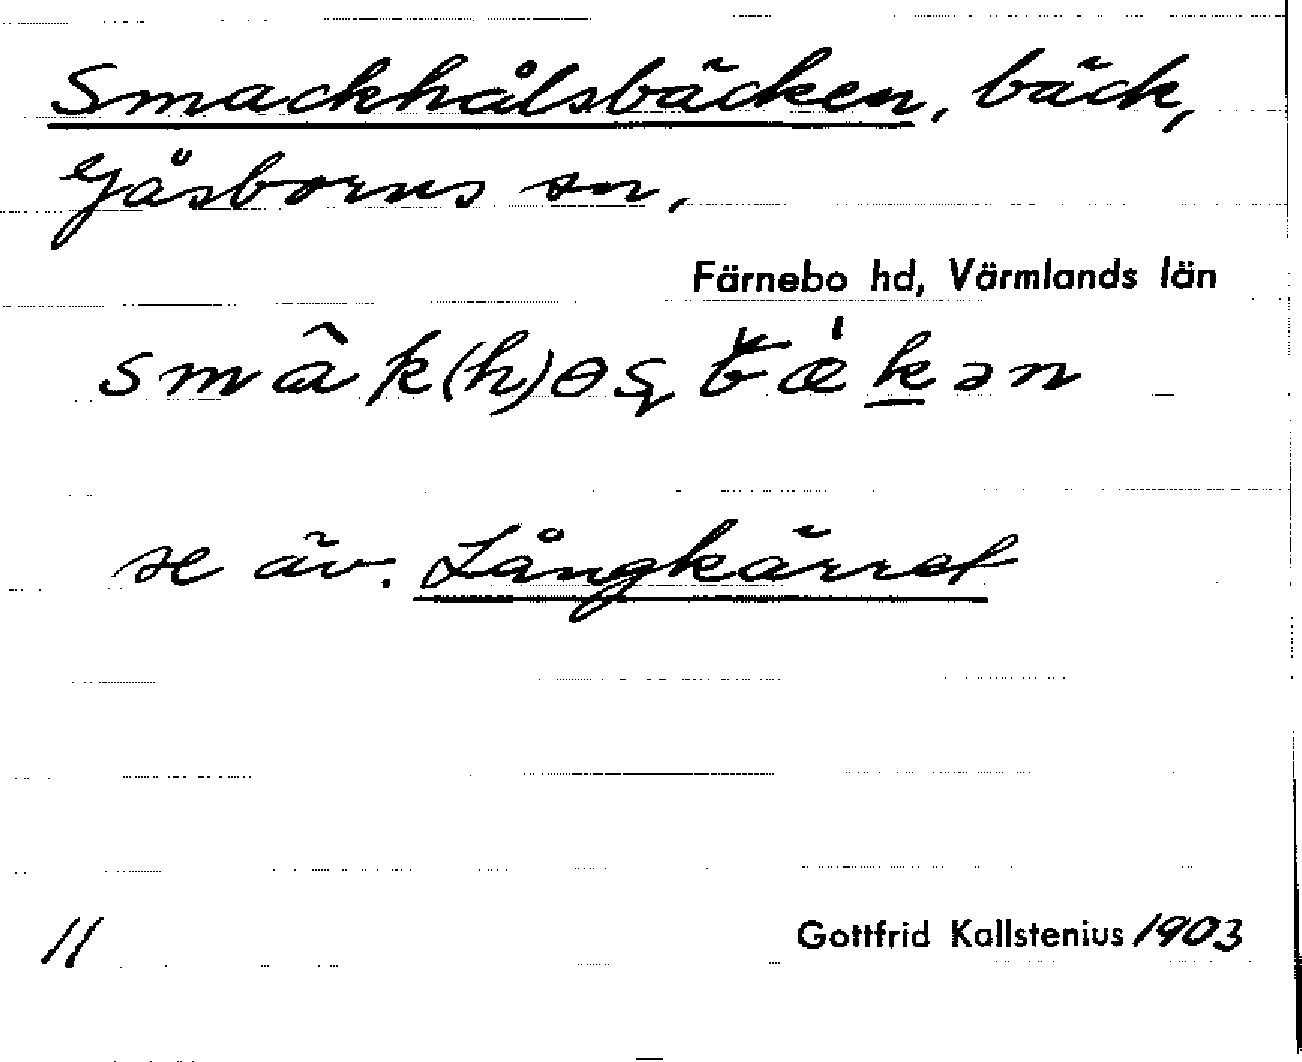 Smackhålsbäcken, bäck,
Gåsborns sn,
Färnebo hd, Värmlands län
se äv. Långkärret
11 Gottfrid Kallstenius 1903